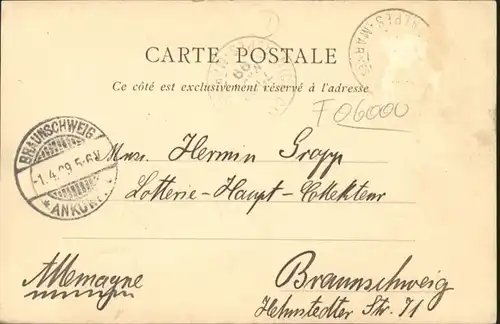 CARTE POSTALE
Ce côté est exclusivement réservé à l'adresse
F06000
BRAUNSCHWEIG
-1.4.09.5-6N
*ANKUN
ALPES-MAR
Monsr. Hermin Grapp
Lotterie-Haupt-Collekteur
Allemagne
Braunschweig
Helmstedter Str. 71